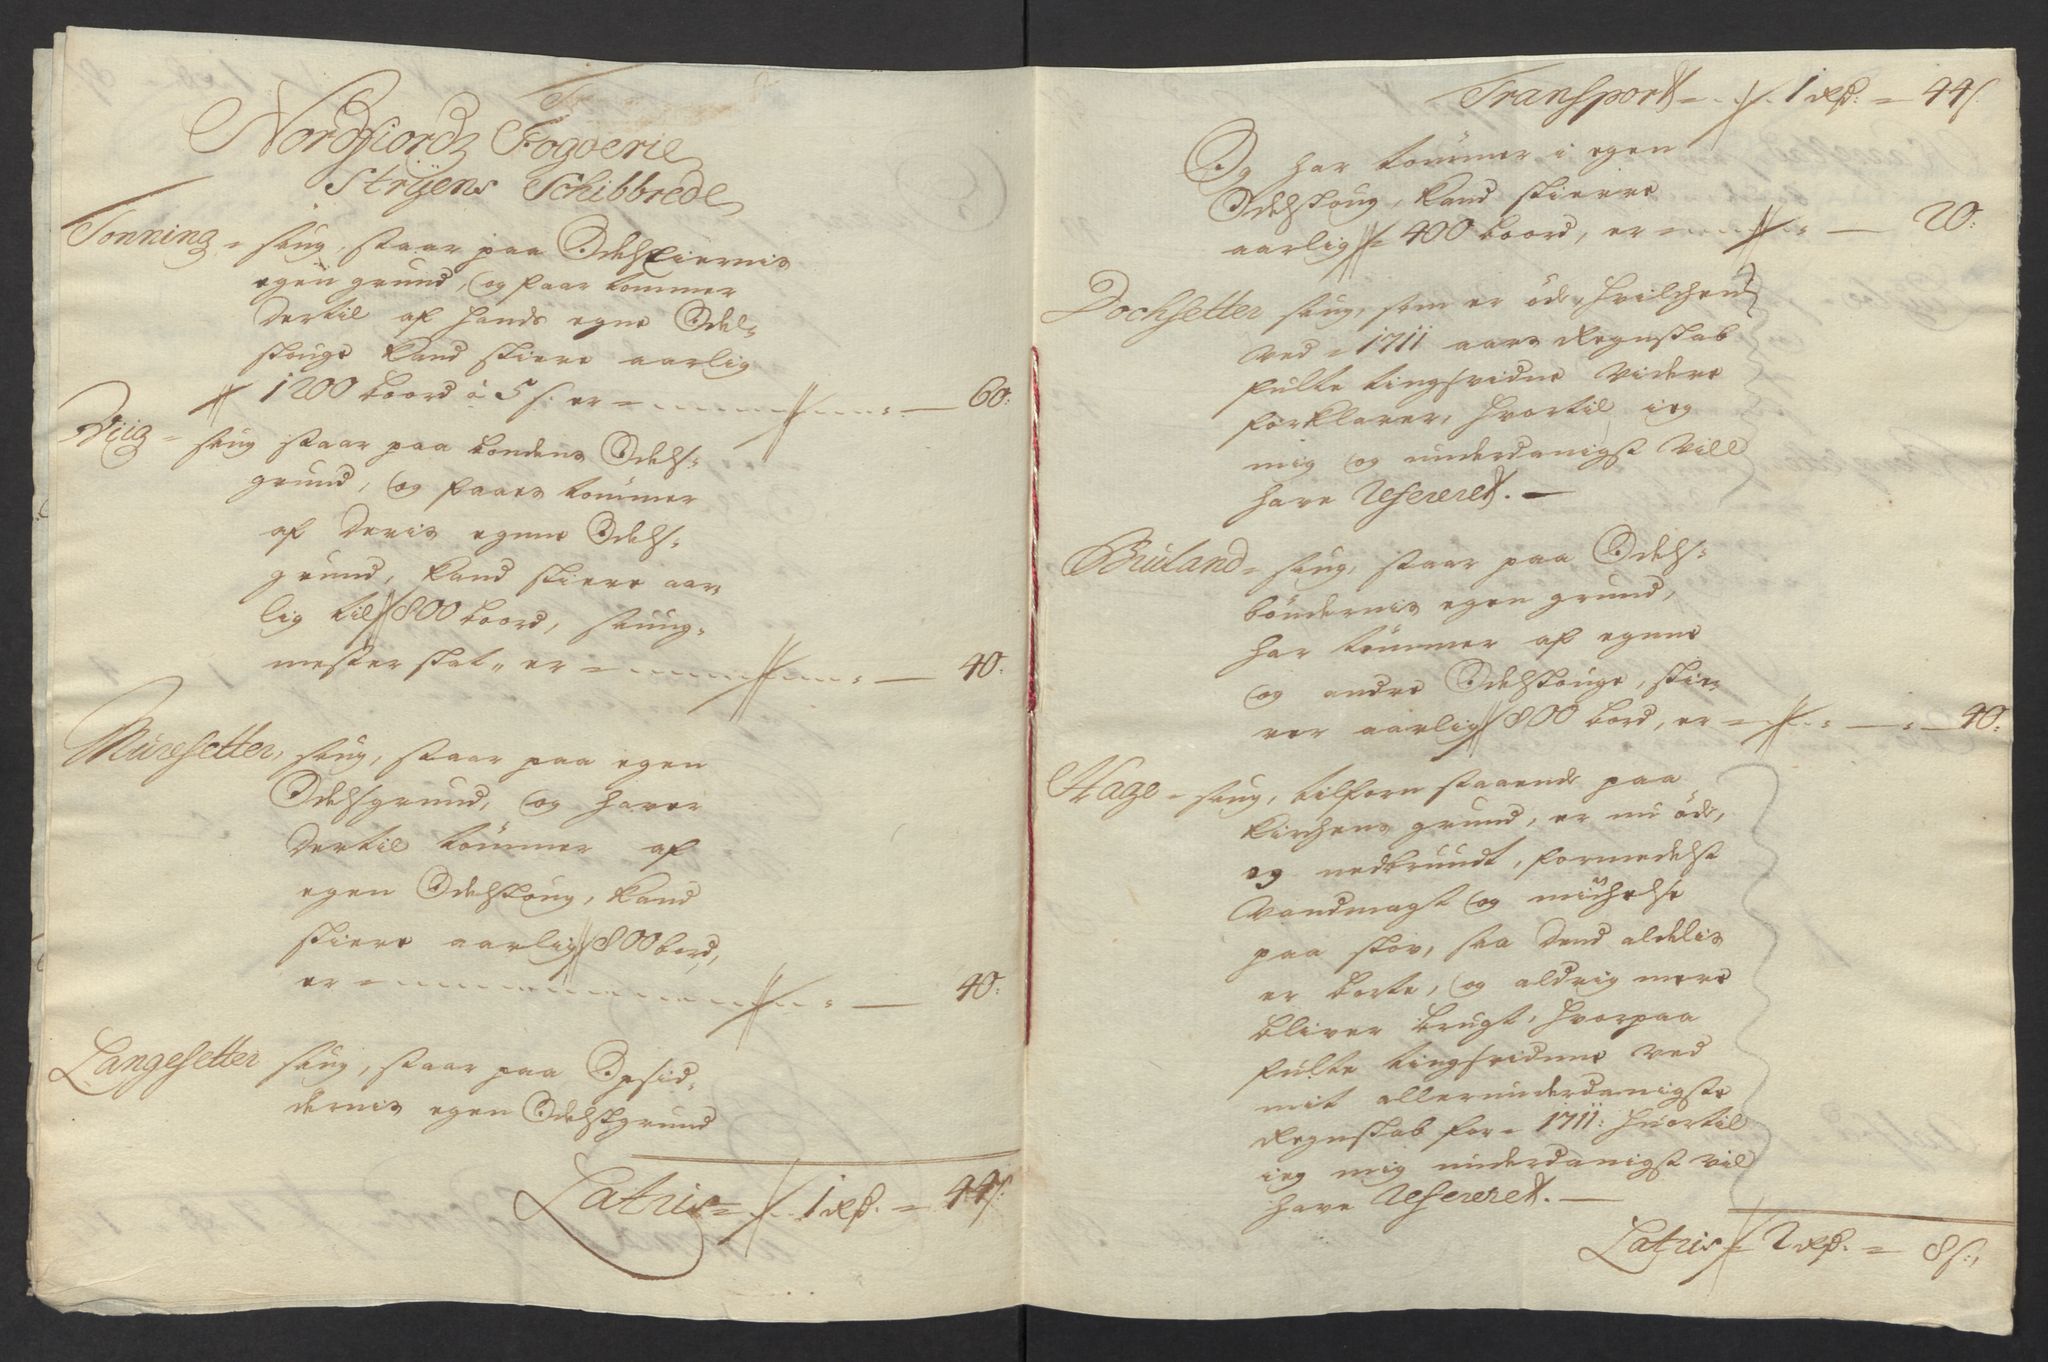 Nordfiords Fogderie
Stryens Schibbrede
Tonning = saug, staar paa Odelseiernis
egen grund, og faar tommer
dertil af hands egne Odel-
skouge kand skiere aarlig
1200 boord à 5 s: er = 60:
Viig = saug staar paa bondens Odels-
grund, og faaes tømmer
af deris egene Odels-
grund, kand skiere aar-
lig til 800 boord, saug-
mester skat er = 40:
Muresetter, saug, staar paa egen
Odelsgrund, og haver
dertil tømmer af
egen Odelskoug, kand
skiere aarlig 800 bord,
er = 40:
Langesetter saug, staar paa Opsid-
dernis egen Odelsgrund
Latris = 1 rd: = 44 s:
Transport = 1 rd: = 44 s:
Og har tømmer i egen
Odelskoug, kand skierre
aarlig = 400 boord, er = 20:
Dochsetter saug, som er øde, hvilchen
ved = 1711 aars Regnskab
fulte tingsvidne videre
forklarer, hvortil ieg
mig og underdanigst vill
have Refereret.
Bruland = saug, staar paa Odels-
bøndernis egen grund,
har tømmer af egene
og andre Odelskouge, skie-
rer aarlig 800 bord, er = 40:
Hage = saug, tilforn staaende paa
Kirchens grund, er nu øde,
og nedbrundt, formedelst
Vandmagt og
paa skov, saa dend aldelis
er borte, og aldrig mere
bliver brugt, hvorpaa
fulte tingsvidne ved
mit allerunderdanigste
Regnskab for = 1711: hvortil
ieg mig underdanigst vil
have Refereret.
Latris = 2 rd: = 8 s: